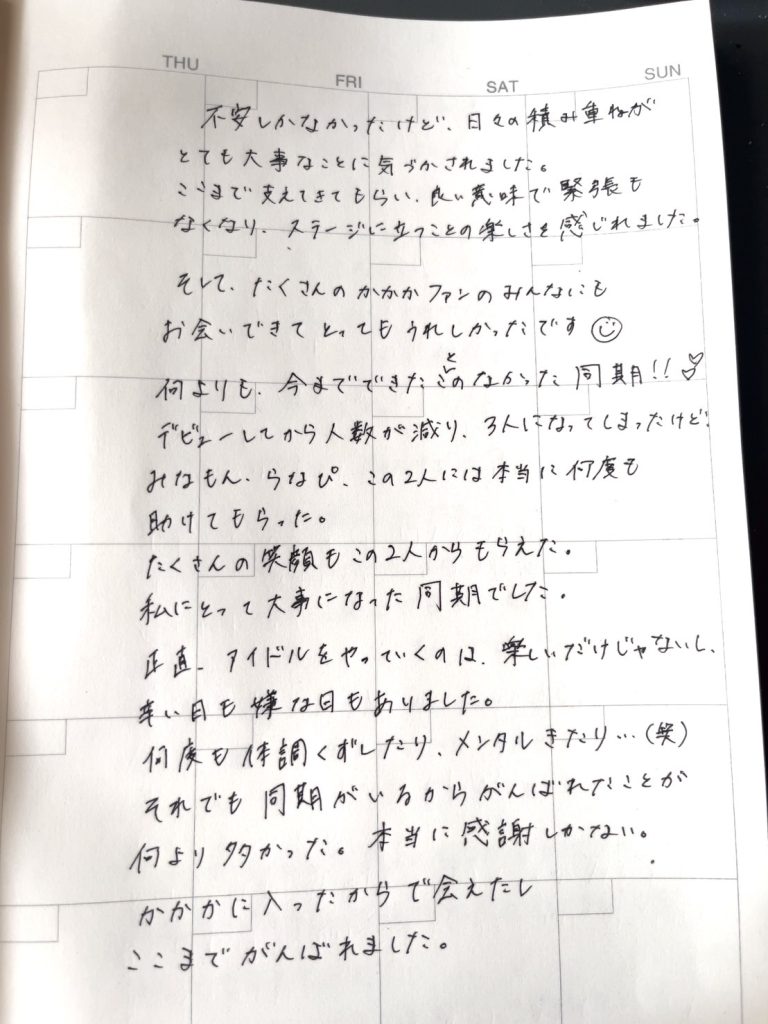 THU FRI SAT SUN
不安しかなかったけど、日々の積み重ねが
とても大事なことに気づかされました。
ここまで支えてきてもらい、良い意味で緊張も
なくなり、ステージに立つことの楽しさを感じれました。
そして、たくさんのかかかファンのみんなにも
お会いできてとってもうれしかったです
何よりも、今までできたことのなかった同期!!
デビューしてから人数が減り、3人になってしまったけど、
みなもん、らなぴ、この2人には本当に何度も
助けてもらった。
たくさんの笑顔もこの2人からもらえた。
私にとって大事になった同期でした。
正直、アイドルをやっていくのは、楽しいだけじゃないし、
辛い日も嫌な日もありました。
何度も体調くずしたり、メンタルきたり…(笑)
それでも同期がいるからがんばれたことが
何より多かった。本当に感謝しかない。
かかかに入ったからで会えたし
ここまでがんばれました。